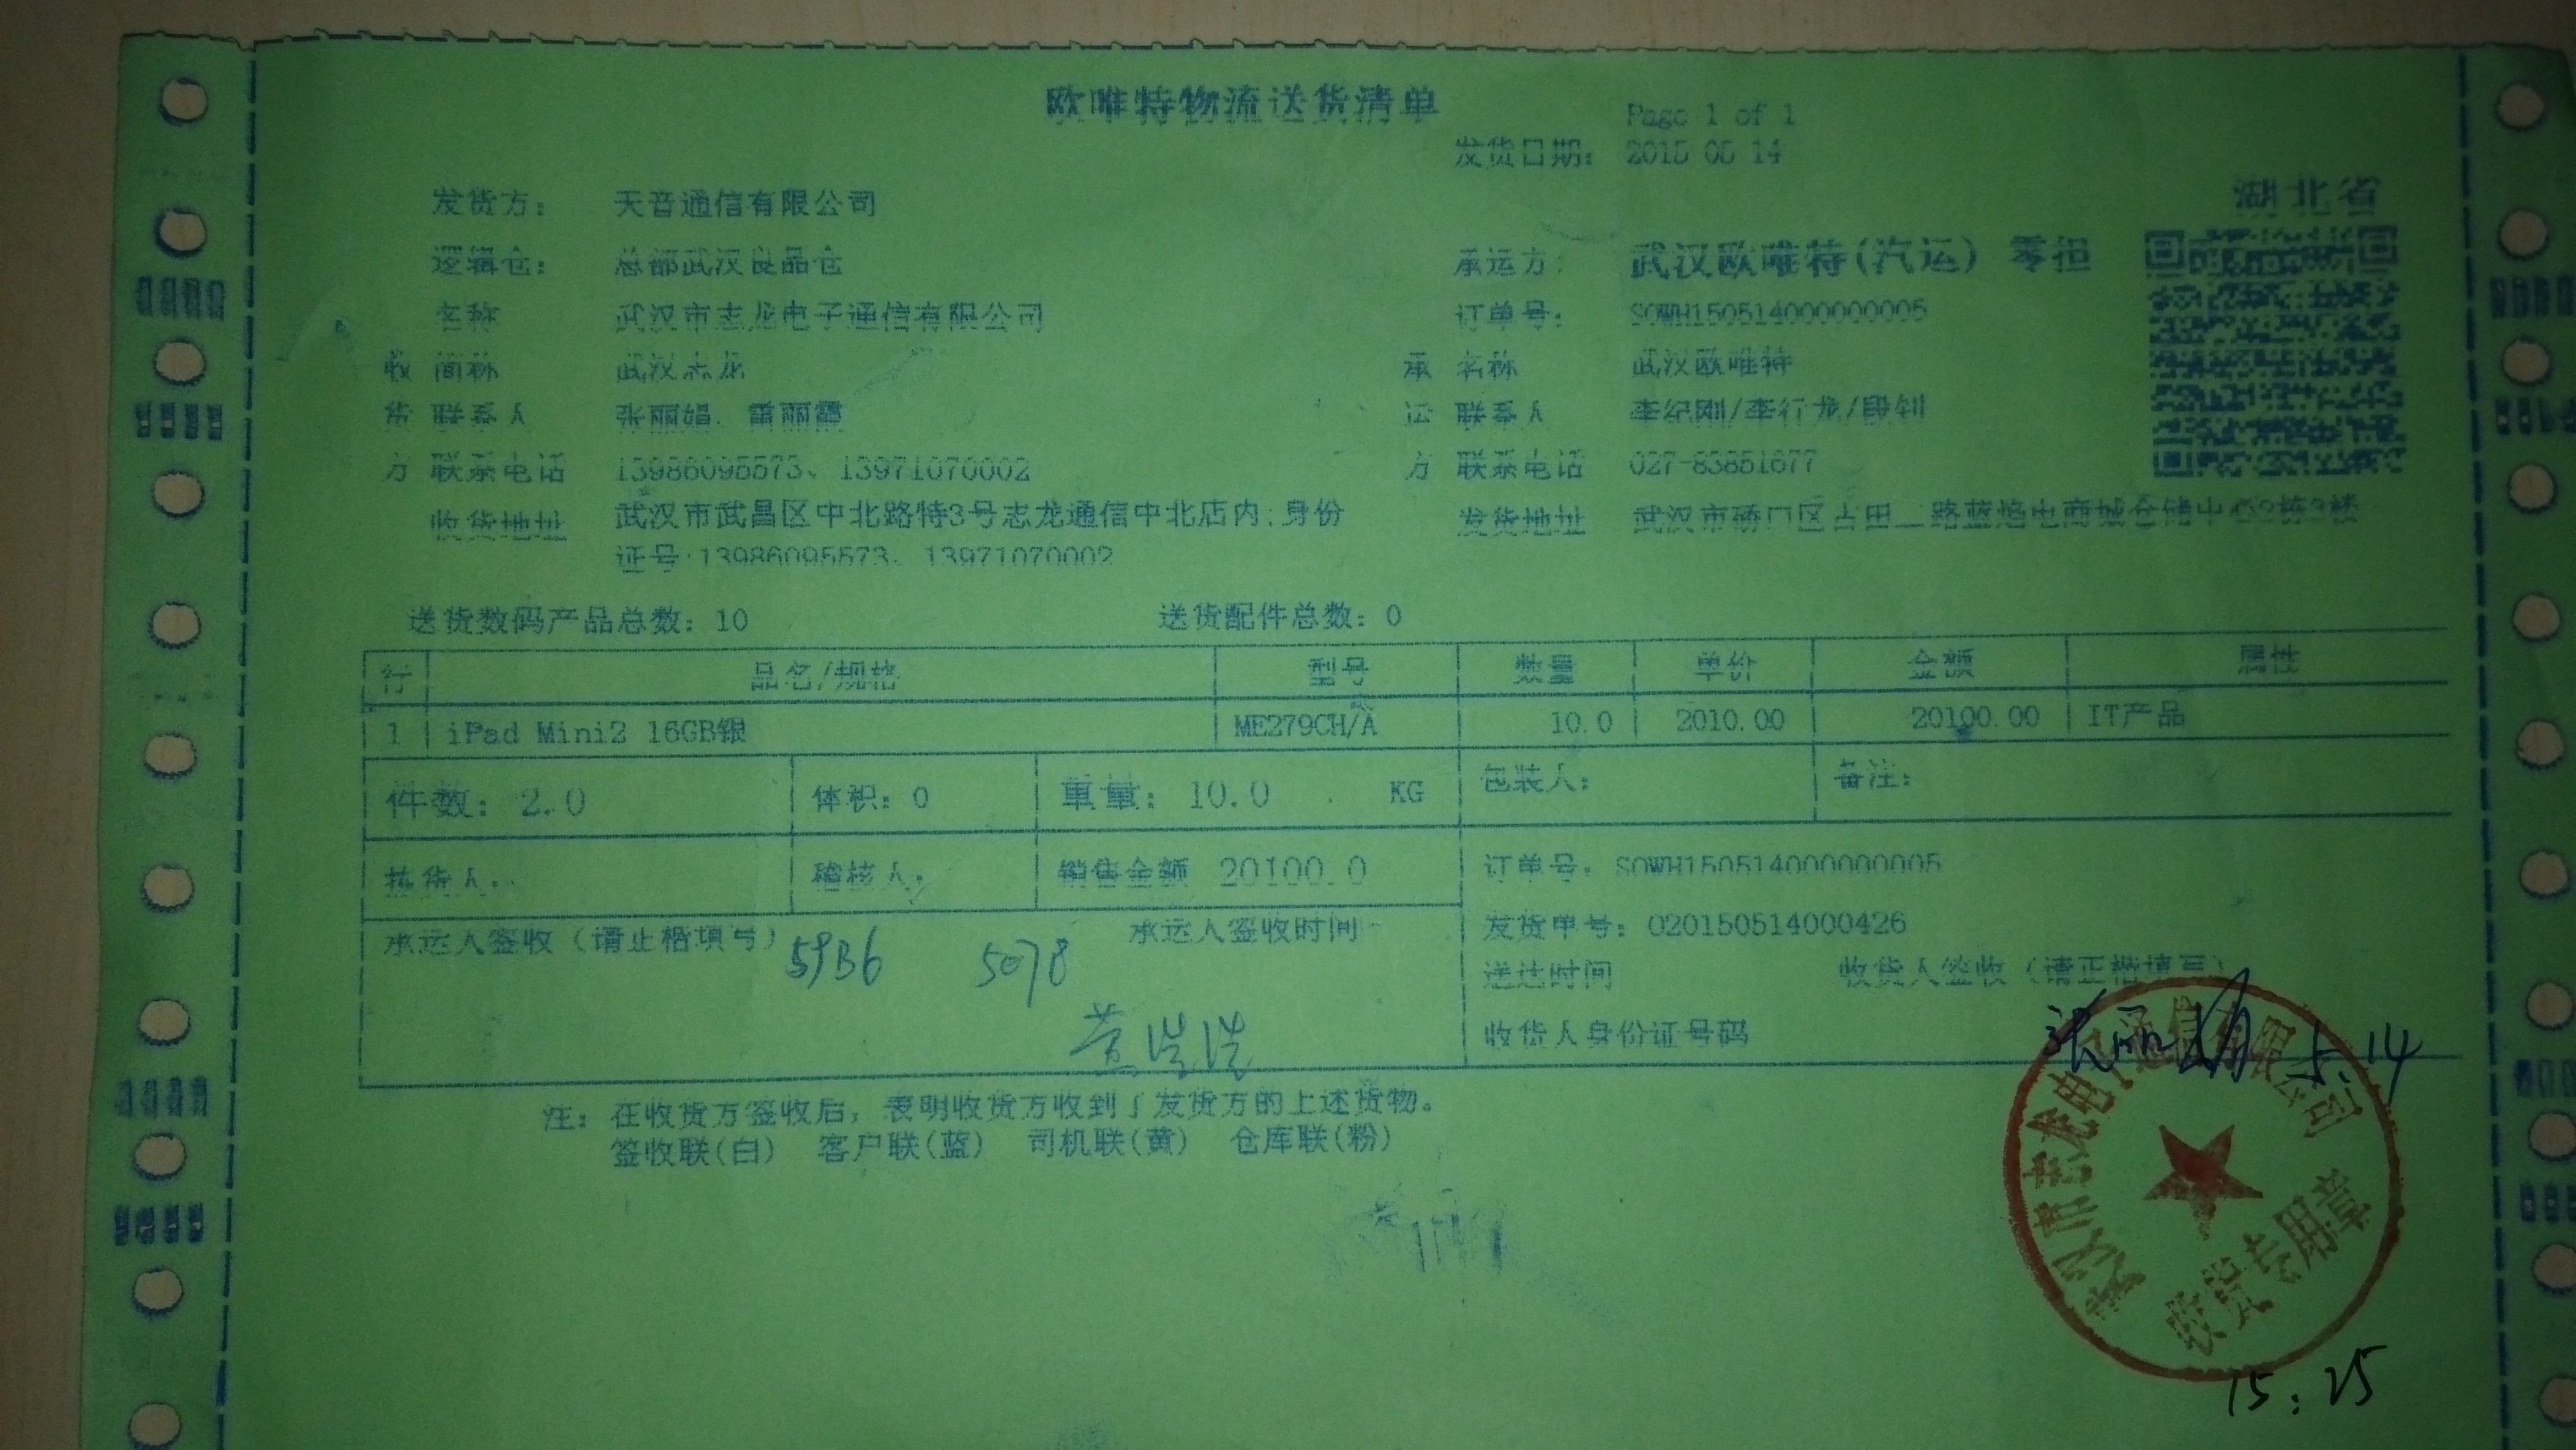 欧唯特物流送货清单
Page 1 of 1
发货日期: 2015 05 14
湖北省
发货方: 天音通信有限公司
逻辑仓: 总部武汉良品仓 承运方: 武汉欧唯特(汽运) 零担
名称 武汉市志龙电子通信有限公司 订单号: SOWH150514000000005
收 简称 武汉志龙 承 名称 武汉欧唯特
货 联系人 张丽娟、雷丽霞 运 联系人 李纪刚/李行龙/段钊
方 联系电话 13986095573、13971070002 方 联系电话 027-83851677
收货地址 武汉市武昌区中北路特3号志龙通信中北店内;身份 发货地址 武汉市硚口区古田二路
证号:13986095573、13971070002
送货数码产品总数: 10 送货配件总数: 0
行 品名/规格 型号 数量 单价 金额
1 iPad Mini2 16GB银 ME279CH/A 10.0 2010.00 20100.00 IT产品
件数: 2.0 体积: 0 重量: 10.0 KG 包装人: 备注:
拣货人: 稽核人: 销售金额 20100.0 订单号: SOWH150514000000005
承运人签收(请正楷填写) 承运人签收时间 发货单号: 020150514000426
59B6 5078
送达时间 收货人签收(请正楷填写)
黄浩浩 收货人身份证号码 张丽娟 5.14
武汉市志龙电子通信有限公司
收货专用章
注: 在收货方签收后, 表明收货方收到了发货方的上述货物。
签收联(白) 客户联(蓝) 司机联(黄) 仓库联(粉)
15:25